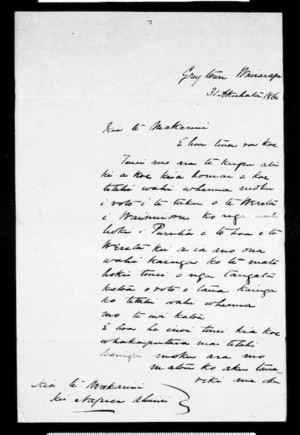 Grey town Wairarapa
31 Akuhata 186
Kia te Makarini
E hoa tena ra koe
Tenei ano na te kupu aki
ki a koe kia homai e koe
tetahi wahi whenua moku
i roto i te tuku o te Wereta
i Waimimiro ko nga
hoki i Purukia e te hoa e te
Wereta kei a ia ano ona
wahi kaenga ko te mate
hokii tenei o nga tangata
katoa o roto o tana kainga
ko tetahi wahi whenua
mo te iwi katoa
E hoa he inoi tenei kia koe
whakaputaia mai tetahi
kainga moku ara mo
matou ko aku tama
riki ma
Kia te Makarini
kei Napier Ahuriri